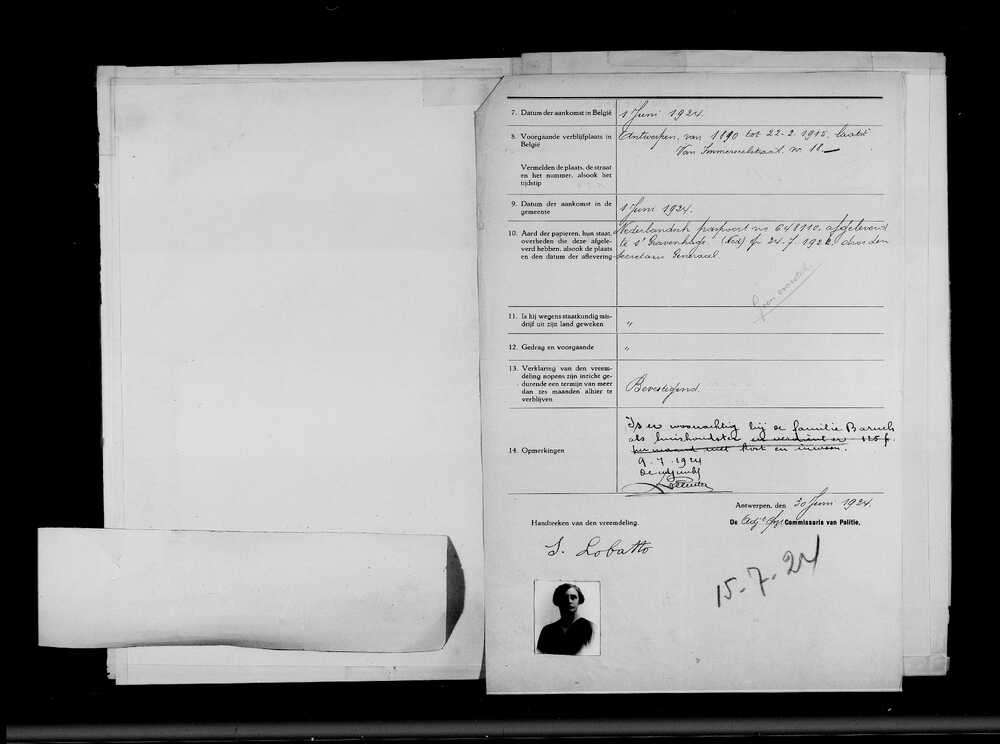 7. Datum der aankomst in België 1 Juni 1924.
8. Voorgaande verblijfplaats in Antwerpen, van 1890 tot 22-2-1915, laatst
België Van Immerseelstraat, nr 18.—
Vermelden de plaats, de straat
en het nummer, alsook het
tijdstip
9. Datum der aankomst in de 1 Juni 1924.
gemeente
10. Aard der papieren, hun staat, Nederlandsch paspoort no 648110, afgeleverd
overheden die deze afgele- te s' Gravenhage. (Ned) op 24.7.1922, door den
verd hebben, alsook de plaats Secretaris Generaal.
en den datum der aflevering
11. Is hij wegens staatkundig mis- "
drijf uit zijn land geweken
12. Gedrag en voorgaande "
13. Verklaring van den vreem-
deling nopens zijn inzicht ge-
durende een termijn van meer Bevestigend
dan zes maanden alhier te
verblijven
Is er woonachtig bij de familie Baruch
als huishoudster en verdient er 125 f.
14. Opmerkingen per maand met kost en inwoon.
9.7.1924
Antwerpen, den 30 Juni 1924.
Handteeken van den vreemdeling. De Adjt Commissaris van Politie.
S. Lobatto
15-7-24